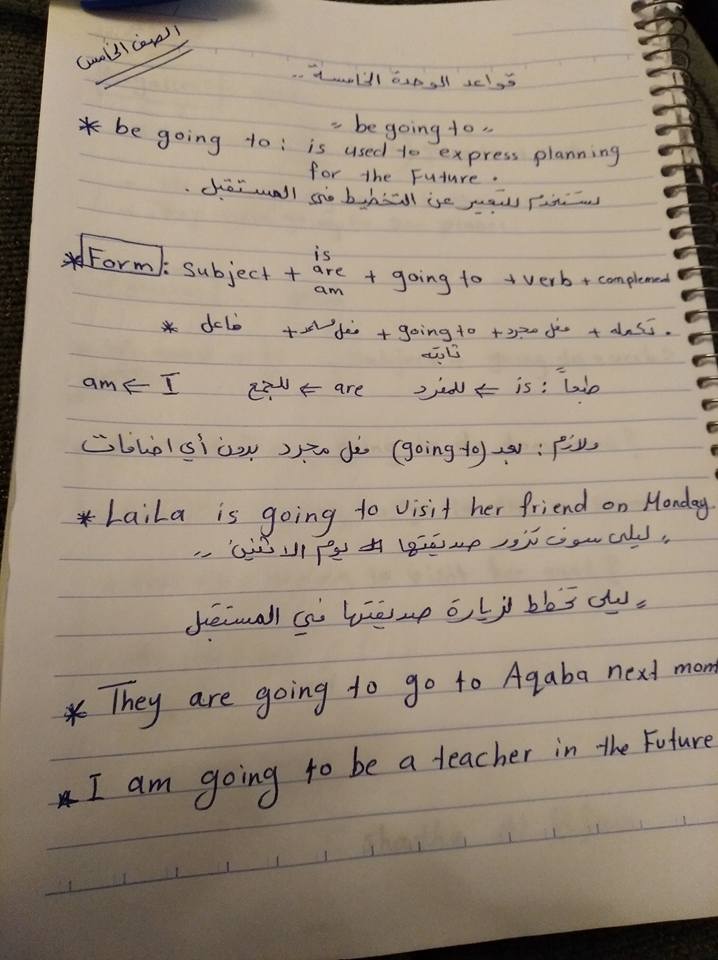 الصف الخامس
قواعد الوحدة الخامسة ..
" be going to "
* be going to : is used to express planning
for the Future .
تستخدم للتعبير عن التخطيط في المستقبل .
* Form : Subject + is are am + going to + verb + complement
* فاعل + فعل مساعد + going to + فعل مجرد + تكملة .
ثابتة
طبعاً : is ← للمفرد are ← للجمع am ← I
ولازم : بعد (going to) فعل مجرد بدون أي اضافات
* LaiLa is going to visit her friend on Monday.
" ليلى سوف تزور صديقتها يوم الاثنين " ..
" ليلى تخطط لزيارة صديقتها في المستقبل
* They are going to go to Aqaba next mont
* I am going to be a teacher in the Future